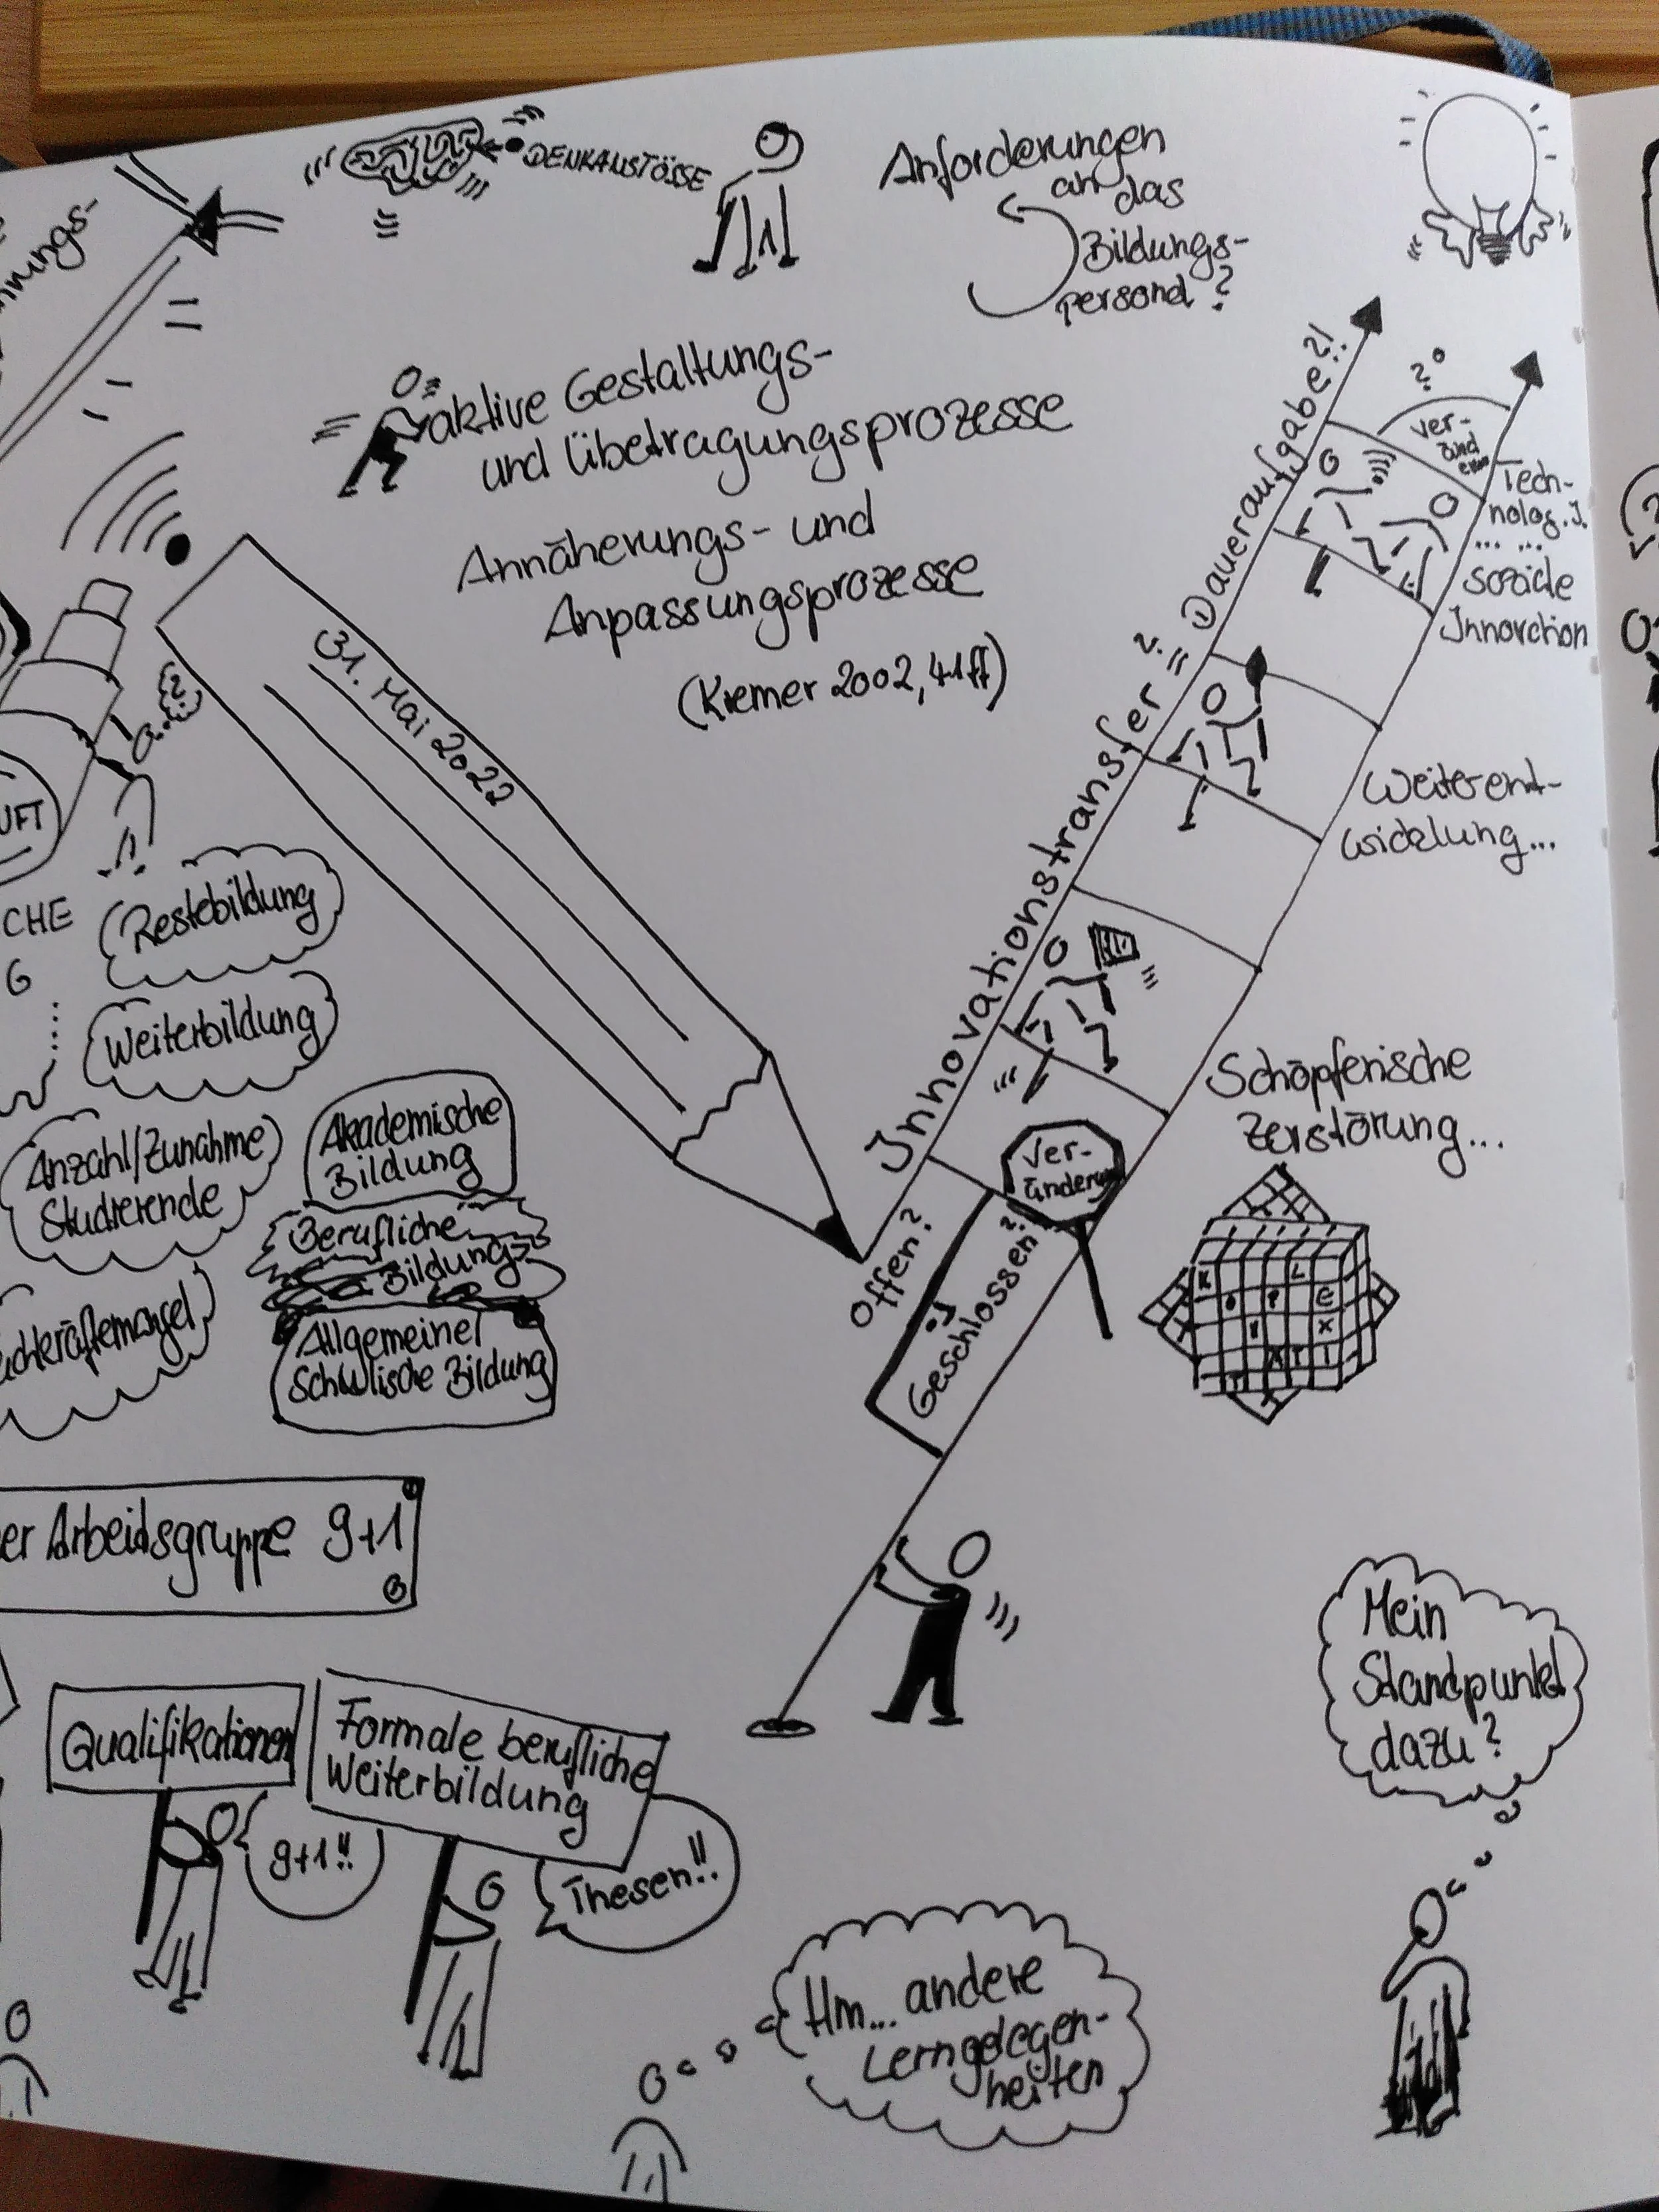 DENKANSTÖSSE
Anforderungen
an das
Bildungs-
personal?
aktive Gestaltungs-
und Übetragungsprozesse
Annäherungs- und
Anpassungsprozesse
(Kremer 2002, 41ff)
31. Mai 2022
Innovationstransfer ?= Daueraufgabe?!
?
ver-
änd
ern
Tech-
nolog. I.
... ...
soziale
Innovation
Weiterent-
wicklung...
Schöpferische
Zerstörung...
Ver-
änderung
Offen?
Geschlossen?
K L
O P E
M X
X T I
T
X
?
UFT
CHE
G
....
Restebildung
Weiterbildung
Anzahl/Zunahme
Studierende
Akademische
Bildung
Berufliche
Bildung
Allgemeine
Schulische Bildung
achkräftemangel
er Arbeitsgruppe 9+1
Qualifikationen
Formale berufliche
Weiterbildung
9+1!!
Thesen!!
Hm... andere
Lerngelegen-
heiten
Mein
Standpunkt
dazu?